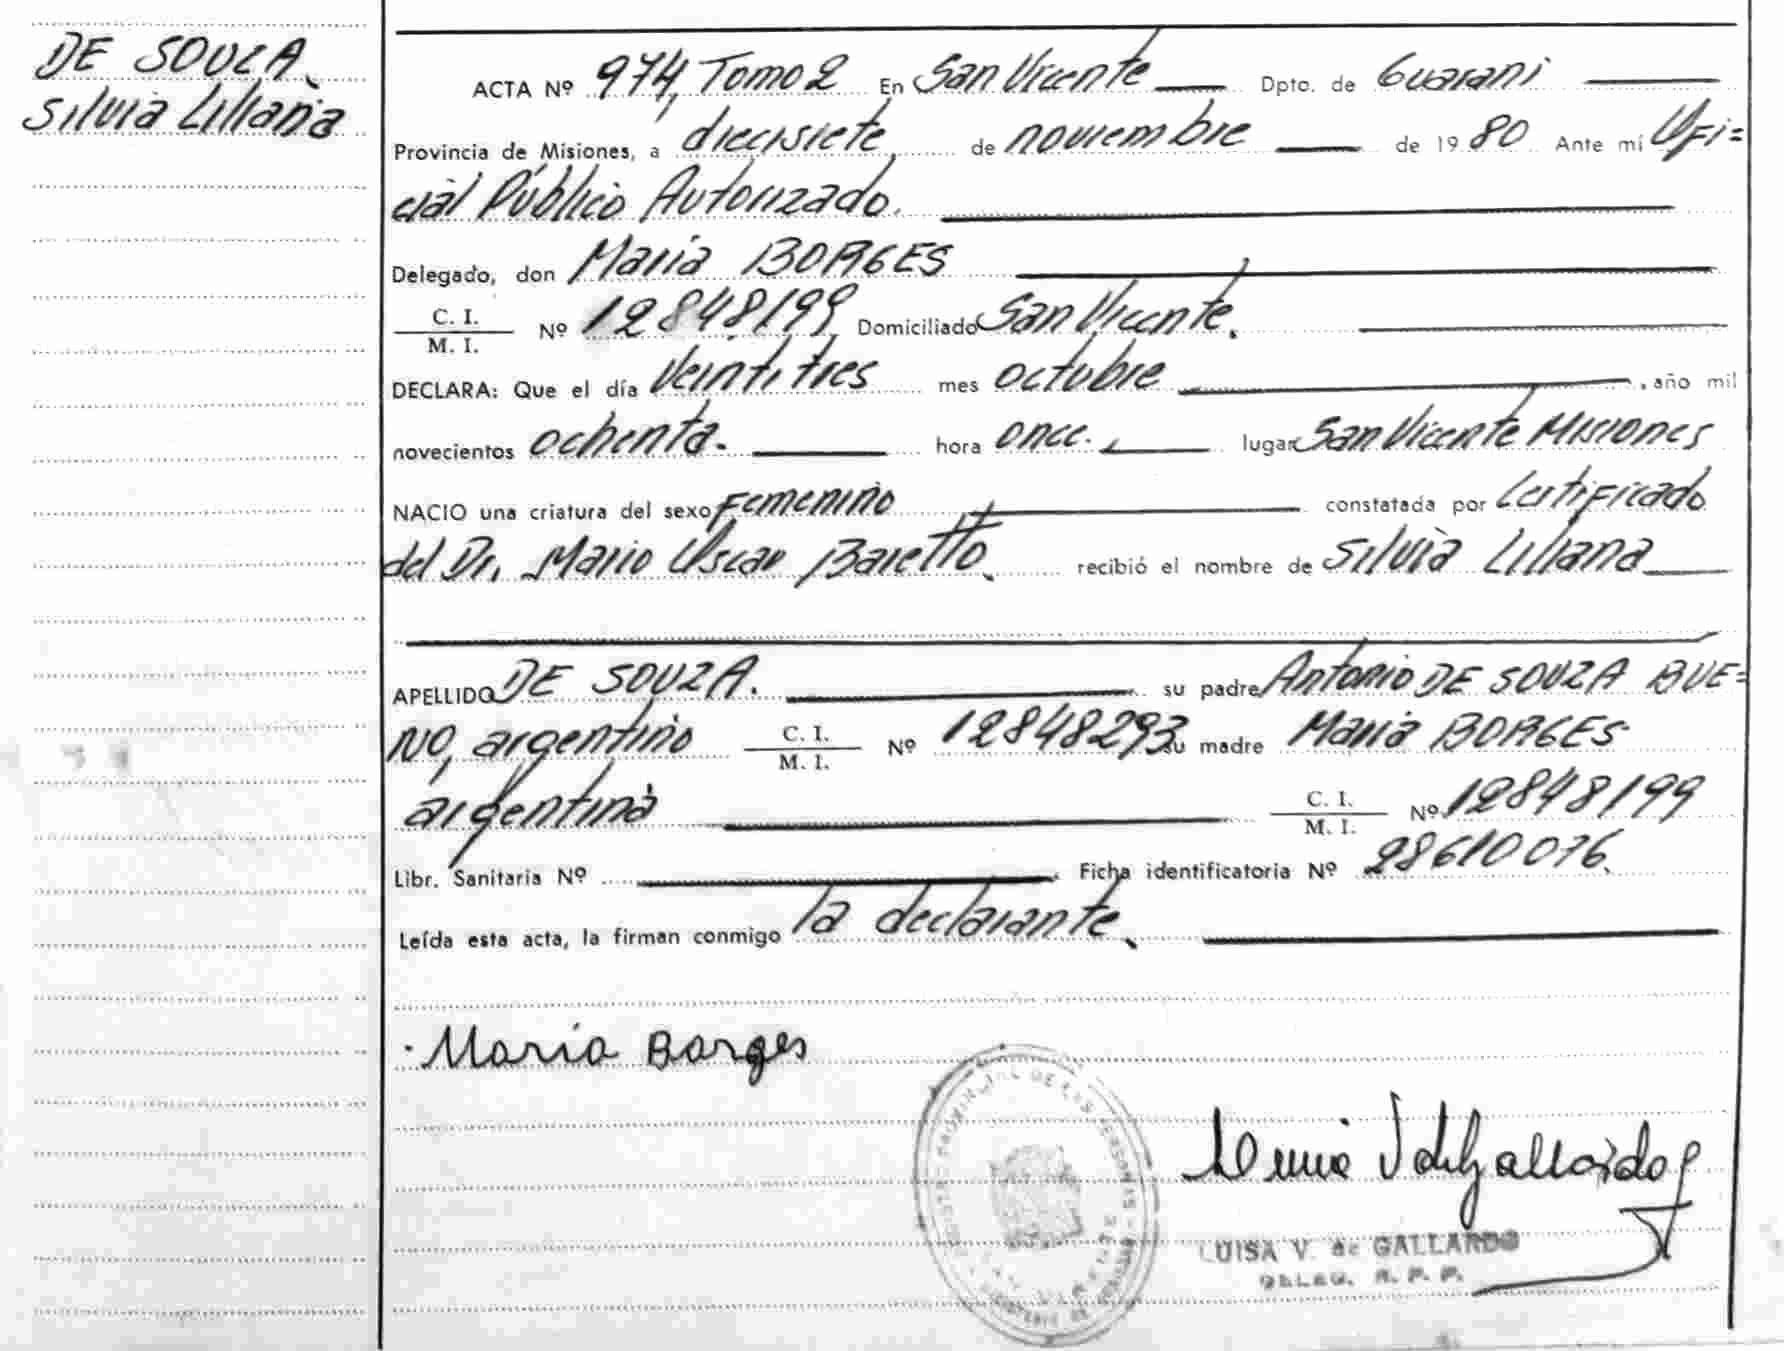 DE SOUZA,
Silvia Liliana
ACTA Nº 974, Tomo 2 En San Vicente Dpto. de Guarani
Provincia de Misiones, a diecisiete de noviembre de 1980 Ante mi Ofi=
cial Público Autorizado.
Delegado, don Maria BORGES
C. I.
M. I. Nº 12848199 Domiciliado San Vicente.
DECLARA: Que el día Veintitres mes octubre , año mil
novecientos ochenta. hora once. lugar San Vicente Misiones
NACIO una criatura del sexo Femenino constatada por Certificado
del Dr. Mario Oscar Baretto. recibió el nombre de Silvia Liliana
APELLIDO DE SOUZA. su padre Antonio DE SOUZA BUE=
NO, argentino C. I.
M. I. Nº 12848293 su madre Maria BORGES
argentina C. I.
M. I. Nº 12848199
Libr. Sanitaria Nº Ficha identificatoria Nº 28610076.
Leída esta acta, la firman conmigo la declarante.
Maria Borges
LUISA V. de GALLARDO
DELEG. R. P. P.